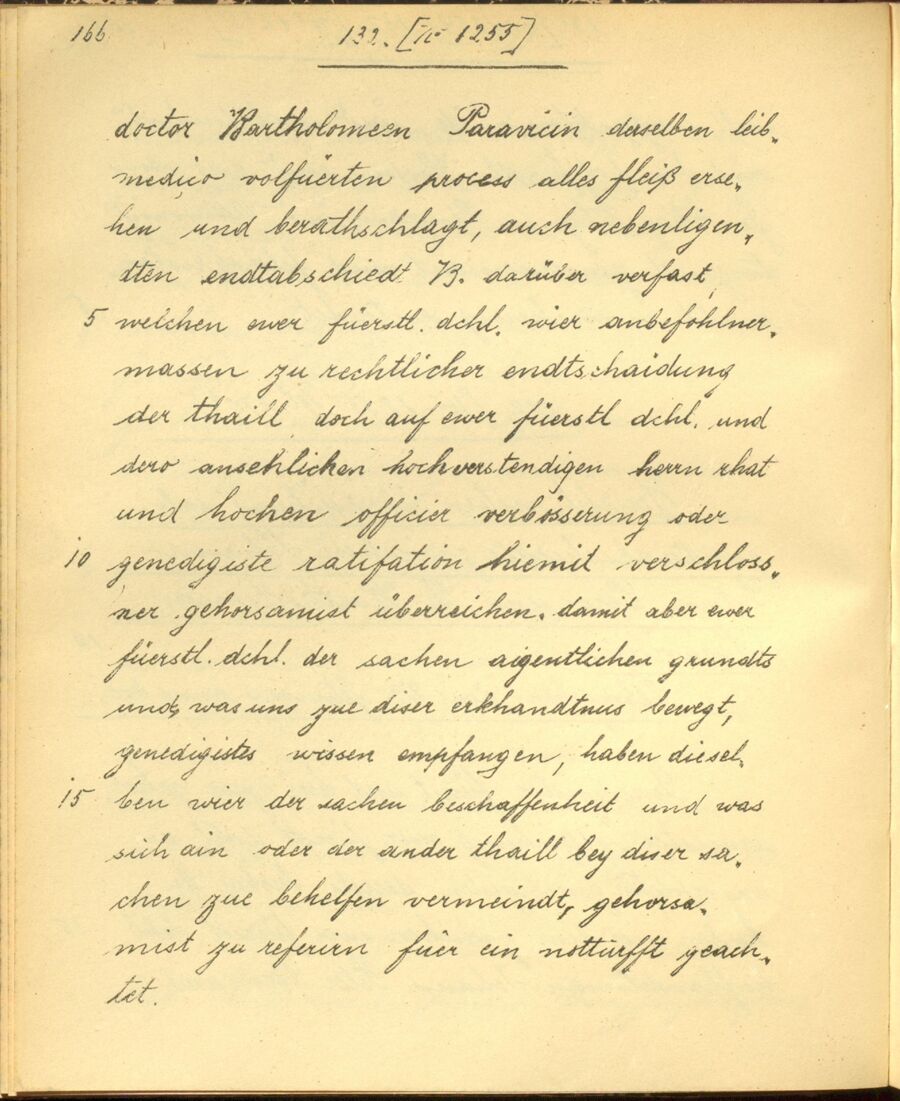 166
132. [N 1255]
doctor Bartholomeen Paravicin derselben leib„
medico volfüerten process alles fleiß erse„
hen und berathschlagt, auch nebenligen„
dten endtabschiedt B. darüber verfast,
5 welchen ewer füerstl. dchl. wier anbefohlner„
massen zu rechtlicher endtschaidung
der thaill doch auf ewer füerstl dchl. und
dero ansehlichen hochverstendigen herrn rhat
und hochen officier verbösserung oder
10 genedigiste ratifation hiemit verschloss„
ner gehorsamist überreichen. damit aber ewer
füerstl. dchl. der sachen aigentlichen grundts
und, was uns zue diser erkhandtnus bewegt,
genedigistes wissen empfangen, haben diesel„
15 ben wier der sachen beschaffenheit und was
sich ain oder der ander thaill bey diser sa„
chen zue behelfen vermeindt, gehorsa„
mist zu referirn füer ein notturfft geach„
tet.